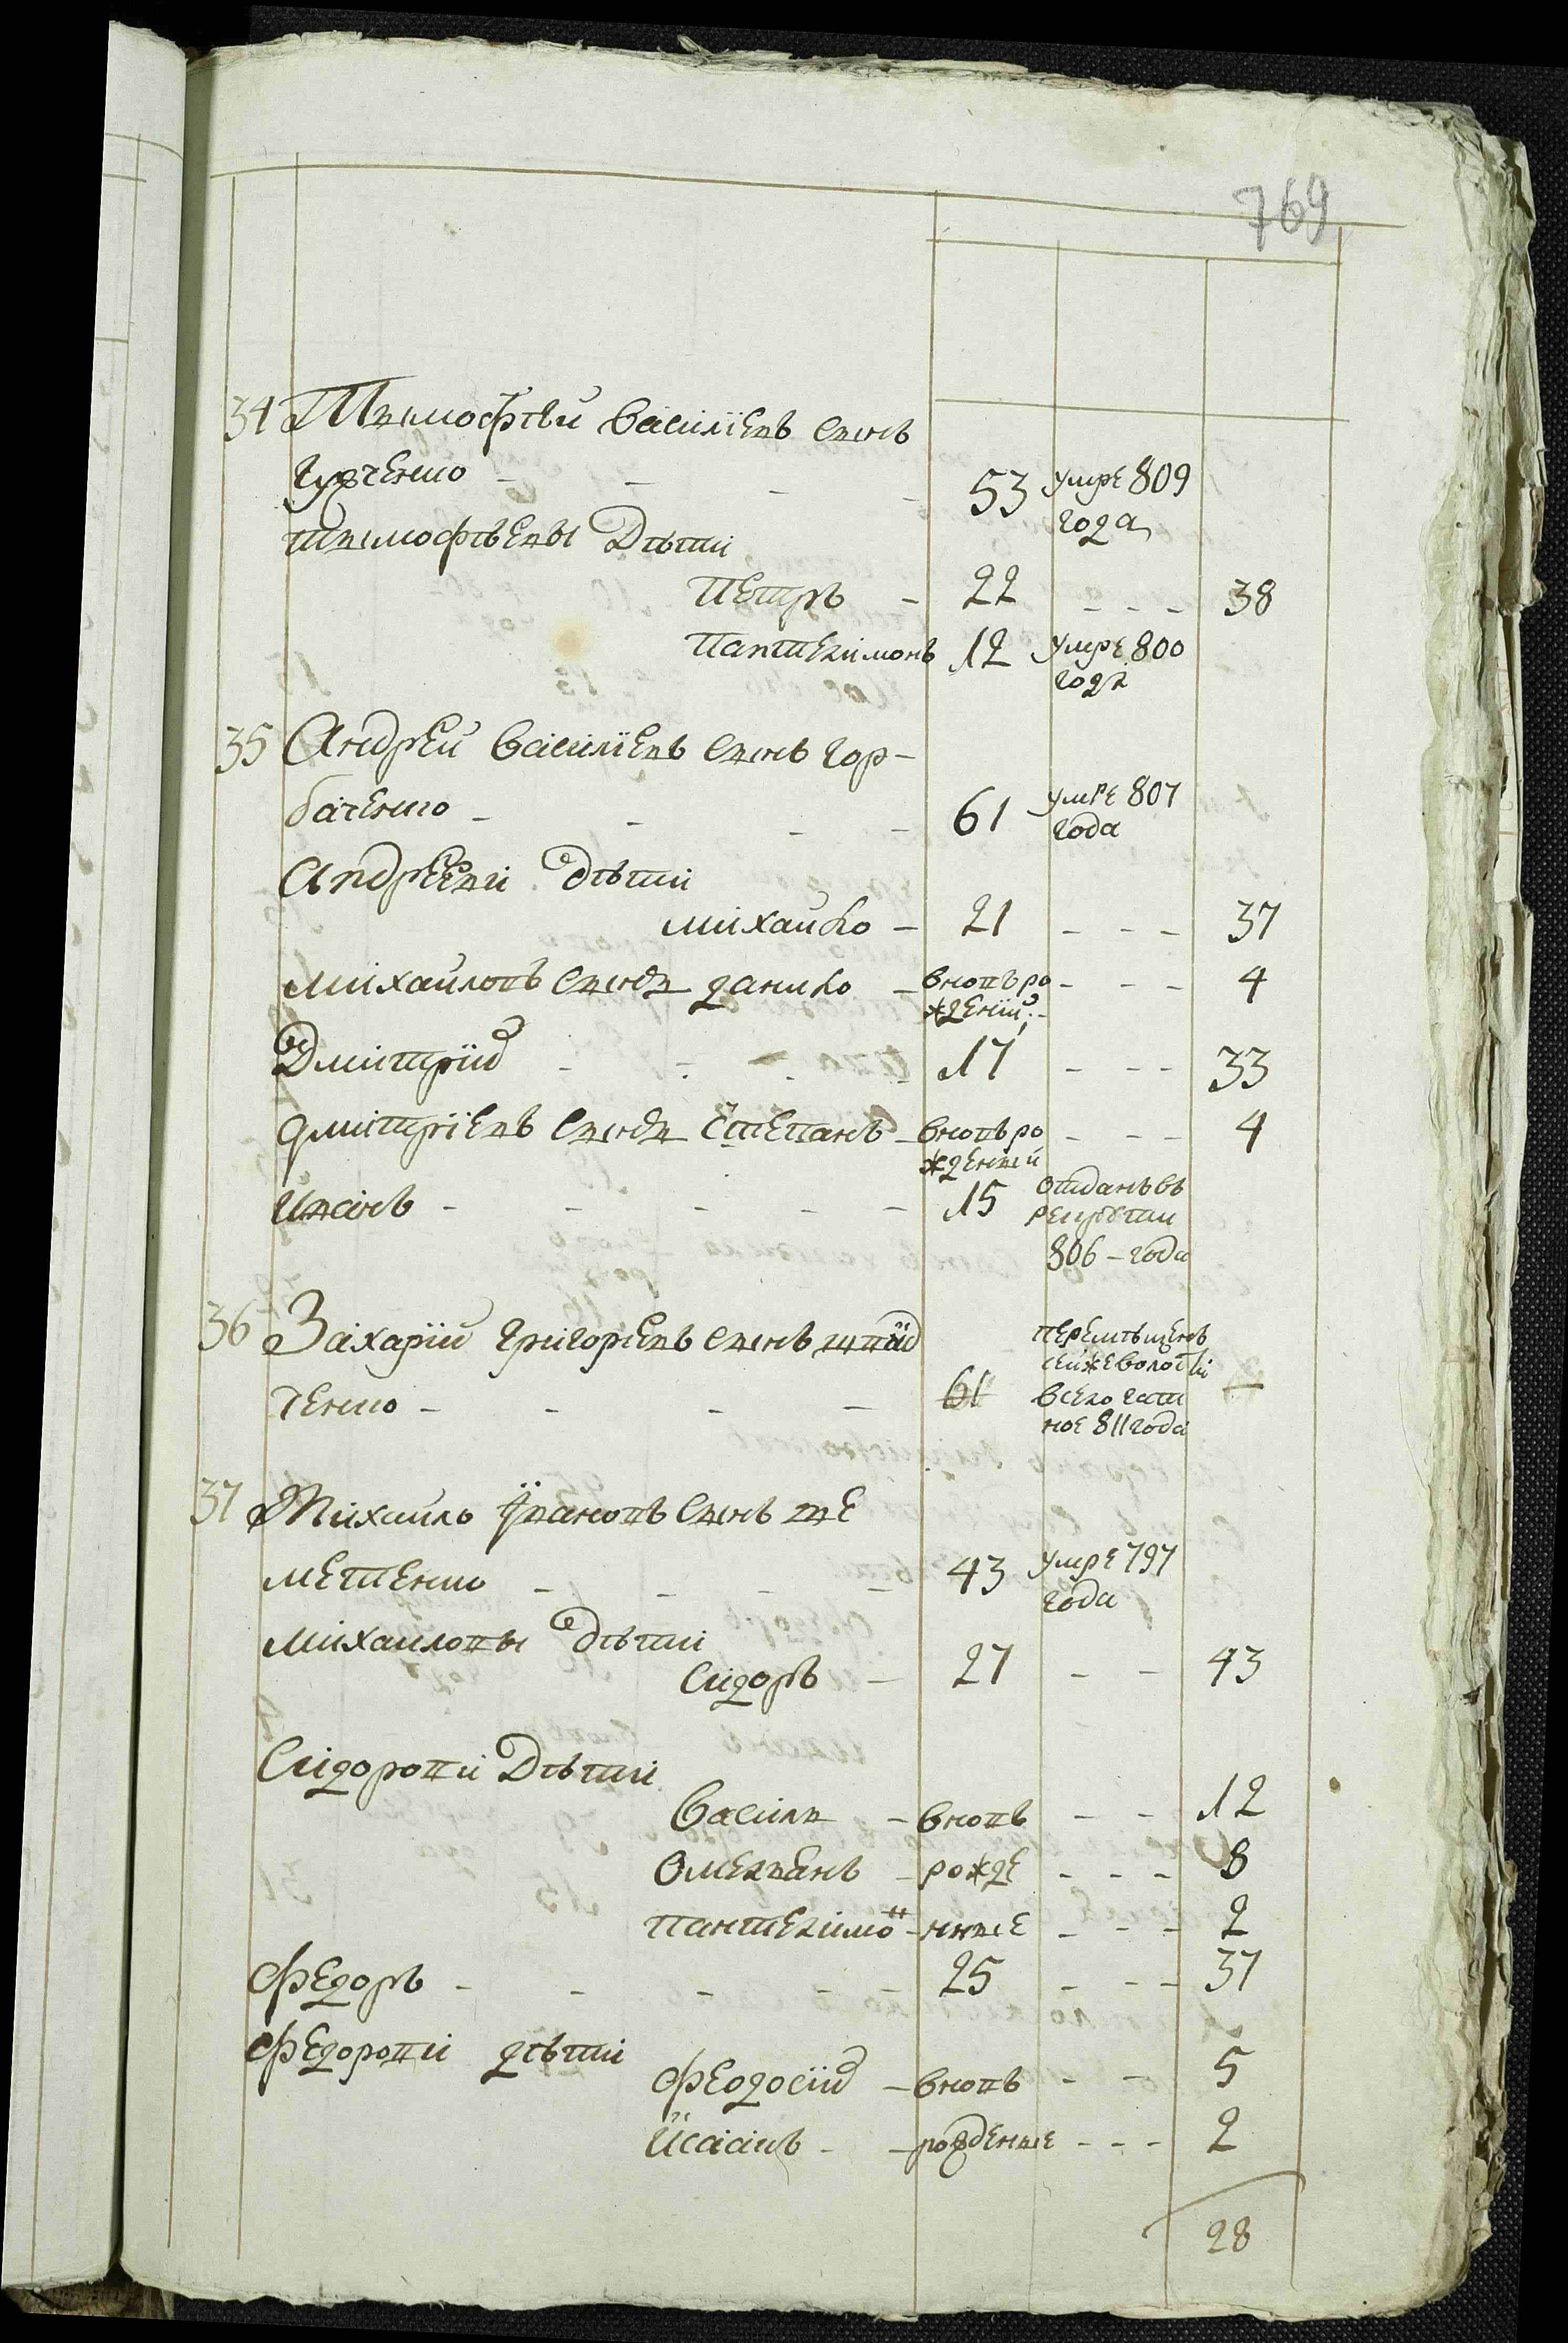 769
34 Тимофѣй Василіевъ сынъ
Гурченко - - - - 53 умре 809
года
тимофѣевы Дѣти
Петръ - 22 - - - 38
Пантелимонъ 12 умре 800
года
35 Андрей Василіевъ сынъ Гор-
баченко - - - - 61 умре 807
года
Андреевы Дѣти
михайло - 21 - - - 37
михайловъ сынъ данило - вновь ро - - - 4
жденій
Дмитрій - - - - 17 - - - 33
дмитріевъ сынъ Степанъ - вновь ро - - - 4
жденый
Иванъ - - - - - 15 отданъ въ
рекруты
806 - года
36 Захарій Григорьевъ сынъ
ченко - - - - 61 перемѣщенъ
сей же волости
в село Гати
ное 811 года
37 Михайло Ивановъ сынъ ше
метенко - - - - 43 умре 797
года
михайловы дѣти
Сидоръ - 27 - - 43
Сидоровы Дѣти
Василь - вновь - - 12
Омелянъ - рожде - - - 8
пантелимонъ - нные - - - 2
Федоръ - - - - - 25 - - - 37
Федоровы дѣти
Феодосій - вновь - - 5
Исаакъ - - рожденые - - - 2
28